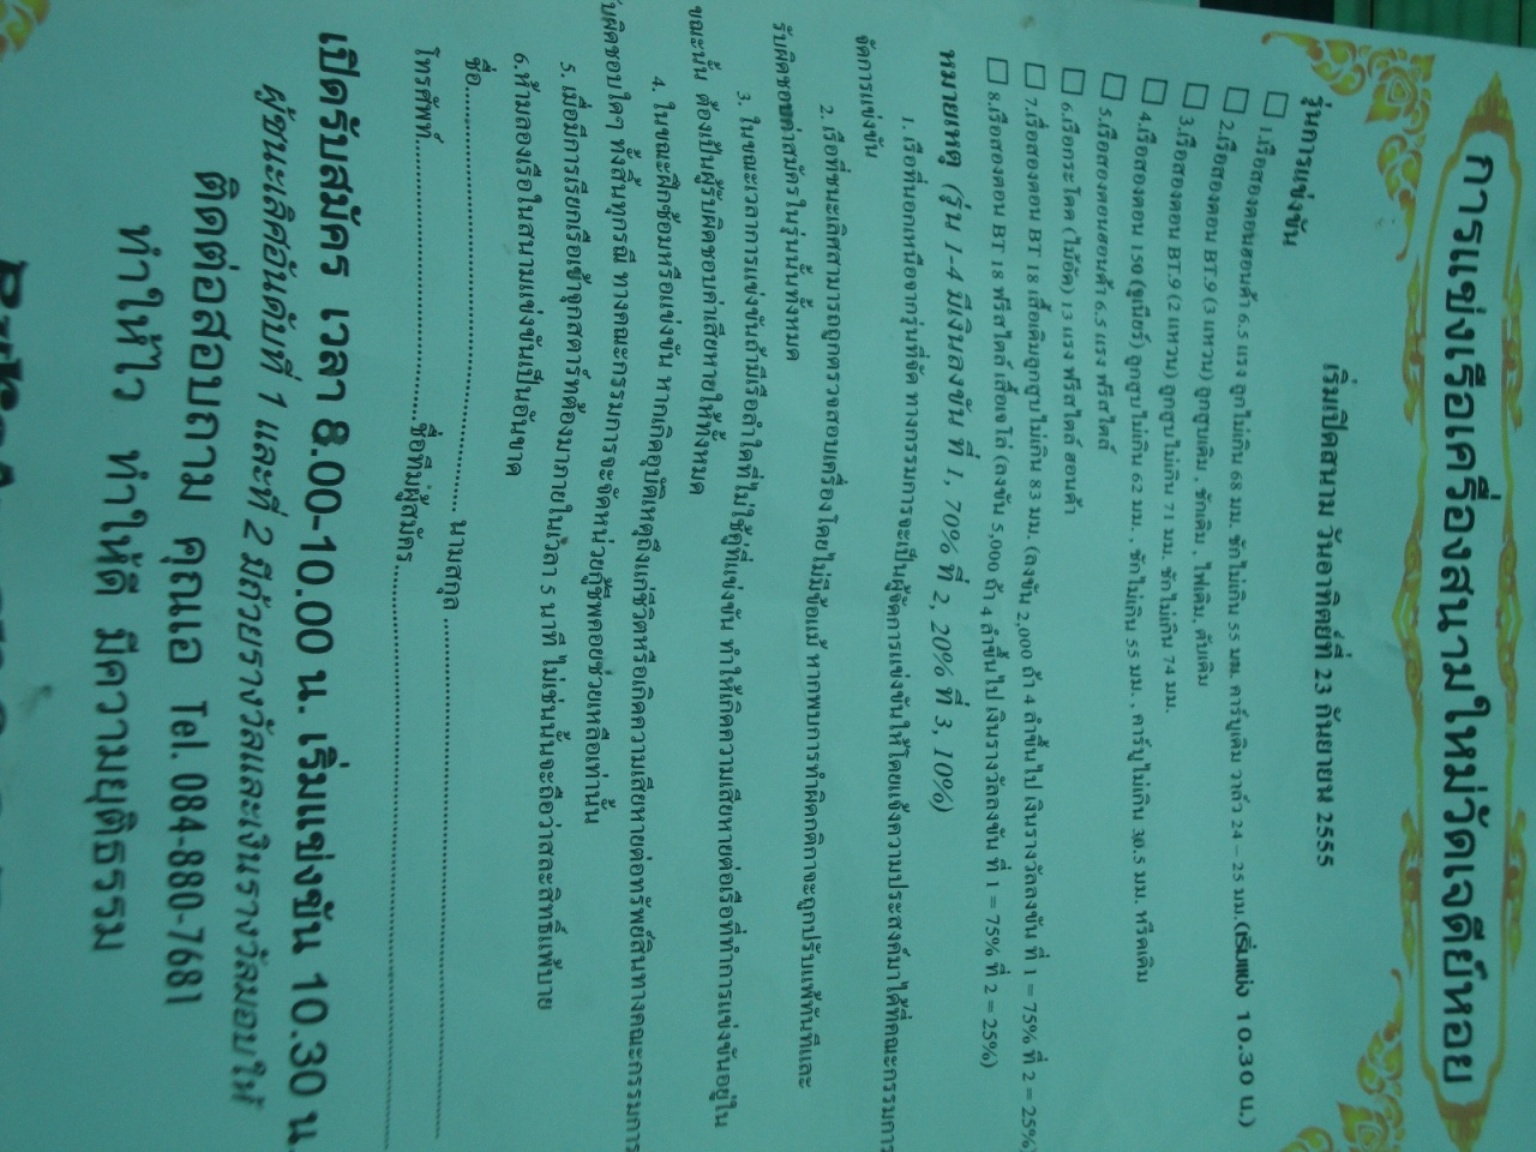 การแข่งเรือเครื่องสนามใหม่วัดเจดีย์หอย
เริ่มเปิดสนาม วันอาทิตย์ที่ 23 กันยายน 2555
รุ่นการแข่งขัน
1.เรือสองตอนฮอนด้า 6.5 แรง ลูกไม่เกิน 68 มม. ชักไม่เกิน 55 มม. คาร์บูเดิม วาล์ว 24 – 25 มม.(เริ่มแข่ง 10.30 น.)
2.เรือสองตอน BT.9 (3 แหวน) ลูกสูบเดิม , ชักเดิม , ไฟเดิม, ตับเดิม
3.เรือสองตอน BT.9 (2 แหวน) ลูกสูบไม่เกิน 71 มม. ชักไม่เกิน 74 มม.
4.เรือสองตอน 150 (จูเนียร์) ลูกสูบไม่เกิน 62 มม. , ชักไม่เกิน 55 มม. , คาร์บูไม่เกิน 30.5 มม. หรีดเดิม
5.เรือสองตอนฮอนด้า 6.5 แรง ฟรีสไตล์
6.เรือกระโดด (ไม้อัด) 13 แรง ฟรีสไตล์ ฮอนด้า
7.เรือสองตอน BT 18 เสื้อเดิมลูกสูบไม่เกิน 83 มม. (ลงขัน 2,000 ถ้า 4 ลำขึ้นไป เงินรางวัลลงขัน ที่ 1 = 75% ที่ 2 = 25%)
8.เรือสองตอน BT 18 ฟรีสไตล์ เสื้อเจโล่ (ลงขัน 5,000 ถ้า 4 ลำขึ้นไป เงินรางวัลลงขัน ที่ 1 = 75% ที่ 2 = 25%)
หมายเหตุ (รุ่น 1-4 มีเงินลงขัน ที่ 1, 70% ที่ 2, 20% ที่ 3, 10%)
1. เรือที่นอกเหนือจากรุ่นที่จัด ทางกรรมการจะเป็นผู้จัดการแข่งขันให้โดยแจ้งความประสงค์มาได้ที่คณะกรรมการ
จัดการแข่งขัน
2. เรือที่ชนะเลิศสามารถถูกตรวจสอบเครื่องโดยไม่มีข้อแม้ หากพบการทำผิดกติกาจะถูกปรับแพ้ทันทีและ
รับผิดชอบค่าสมัครในรุ่นนั้นทั้งหมด
3. ในขณะเวลาการแข่งขันถ้ามีเรือลำใดที่ไม่ใช้คู่ที่แข่งขัน ทำให้เกิดความเสียหายต่อเรือที่ทำการแข่งขันอยู่ใน
ขณะนั้น ต้องเป็นผู้รับผิดชอบค่าเสียหายให้ทั้งหมด
4. ในขณะฝึกซ้อมหรือแข่งขัน หากเกิดอุบัติเหตุถึงแก่ชีวิตหรือเกิดความเสียหายต่อทรัพย์สินทางคณะกรรมการ
บผิดชอบใดๆ ทั้งสิ้นทุกรณี ทางคณะกรรมการจะจัดหน่วยกู้ชีพคอยช่วยเหลือเท่านั้น
5. เมื่อมีการเรียกเรือเข้าจุกสตาร์ทต้องมาภายในเวลา 5 นาที ไม่เช่นนั้นจะถือว่าสละสิทธิ์แพ้บาย
6.ห้ามลองเรือในสนามแข่งขันเป็นอันขาด
ชื่อ.......................................................... นามสกุล ..............................................................
โทรศัพท์........................................ชื่อทีมผู้สมัคร..............................................................
เปิดรับสมัคร เวลา 8.00-10.00 น. เริ่มแข่งขัน 10.30 น.
ผู้ชนะเลิศอันดับที่ 1 และที่ 2 มีถ้วยรางวัลและเงินรางวัลมอบให้
ติดต่อสอบถาม คุณเอ Tel. 084-880-7681
ทำให้ไว ทำให้ดี มีความยุติธรรม